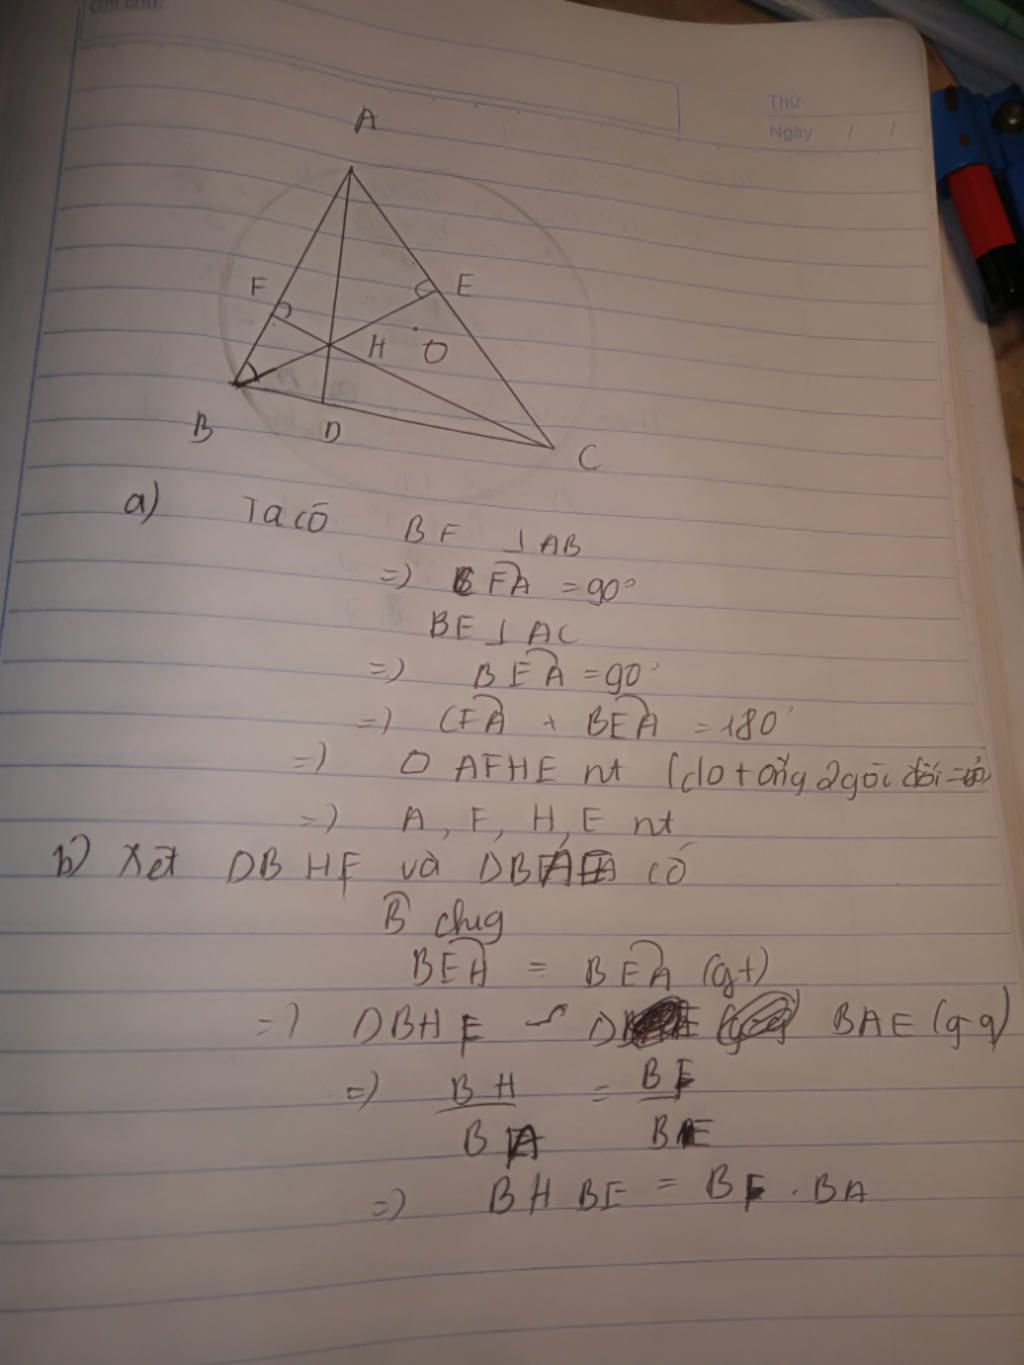 Thứ
Ngày / /
A
F
E
H
O
B
D
C
a) Ta có BF ⊥ AB
=) CFA = 90°
BE ⊥ AC
=) BEA = 90°
=) CFA + BEA = 180°
=) AFHE nt (do tổng 2 góc đối =
=) A, F, H, E nt
b) Xét DBHF và DBAE có
B chug
BEH = BEA (gt)
=) DBHF ∽ D BAE (g-g)
=) BH = BF
BA BE
=) BH BE = BF . BA